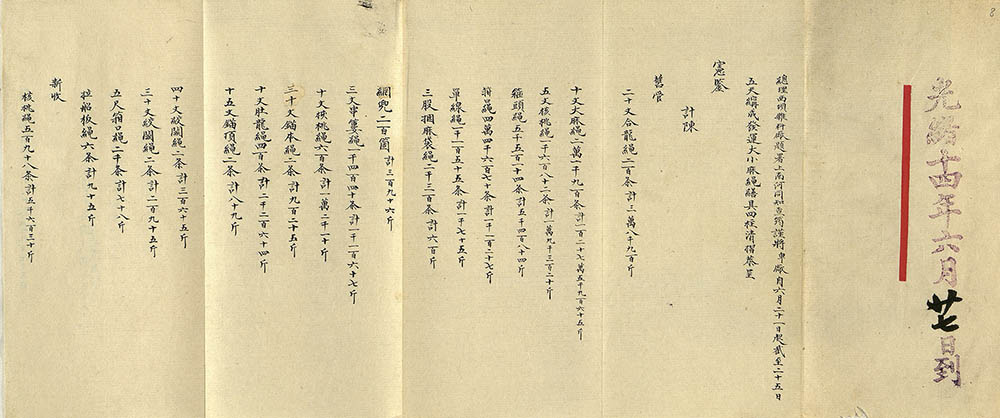 8
光緒十四年六月廿七日到
總理西壩雜料廠題署上南河同知查筠謹將卑廠自六月二十一日起截至二十五日
五天辦成發運大小麻繩繕具四柱清摺恭呈
憲鑒
計陳
舊管
二十丈合龍繩二百條計三萬八千九百斤
十丈大麻繩一萬一千九百條計一百二十七萬五千九百六十五斤
五丈核桃繩一千六百八十二條計一萬九千三百二十斤
箍頭繩五千五百一十條計五千四百八十四斤
綑繩四萬四千六百七十條計一千一百二十七斤
單線繩一千一百五十五條計一千七十五斤
三股捆麻袋繩二千三百條計六百斤
網兜二百箇計三百九十六斤
三丈串簍繩一千四百四十條計一千一百六十七斤
十丈核桃繩六百條計一萬二千一十斤
三十丈錨本繩二條計九百二十五斤
十丈肚龍繩四百條計二千二百六十四斤
十五丈錨頂繩二條計八十九斤
四十丈絞關繩二條計三百六十五斤
三十丈絞關繩二條計二百九十五斤
五尺箱口繩二千條計七十八斤
拉船板繩六條計九十五斤
新收
核桃繩五百九十八條計五千六百三十斤